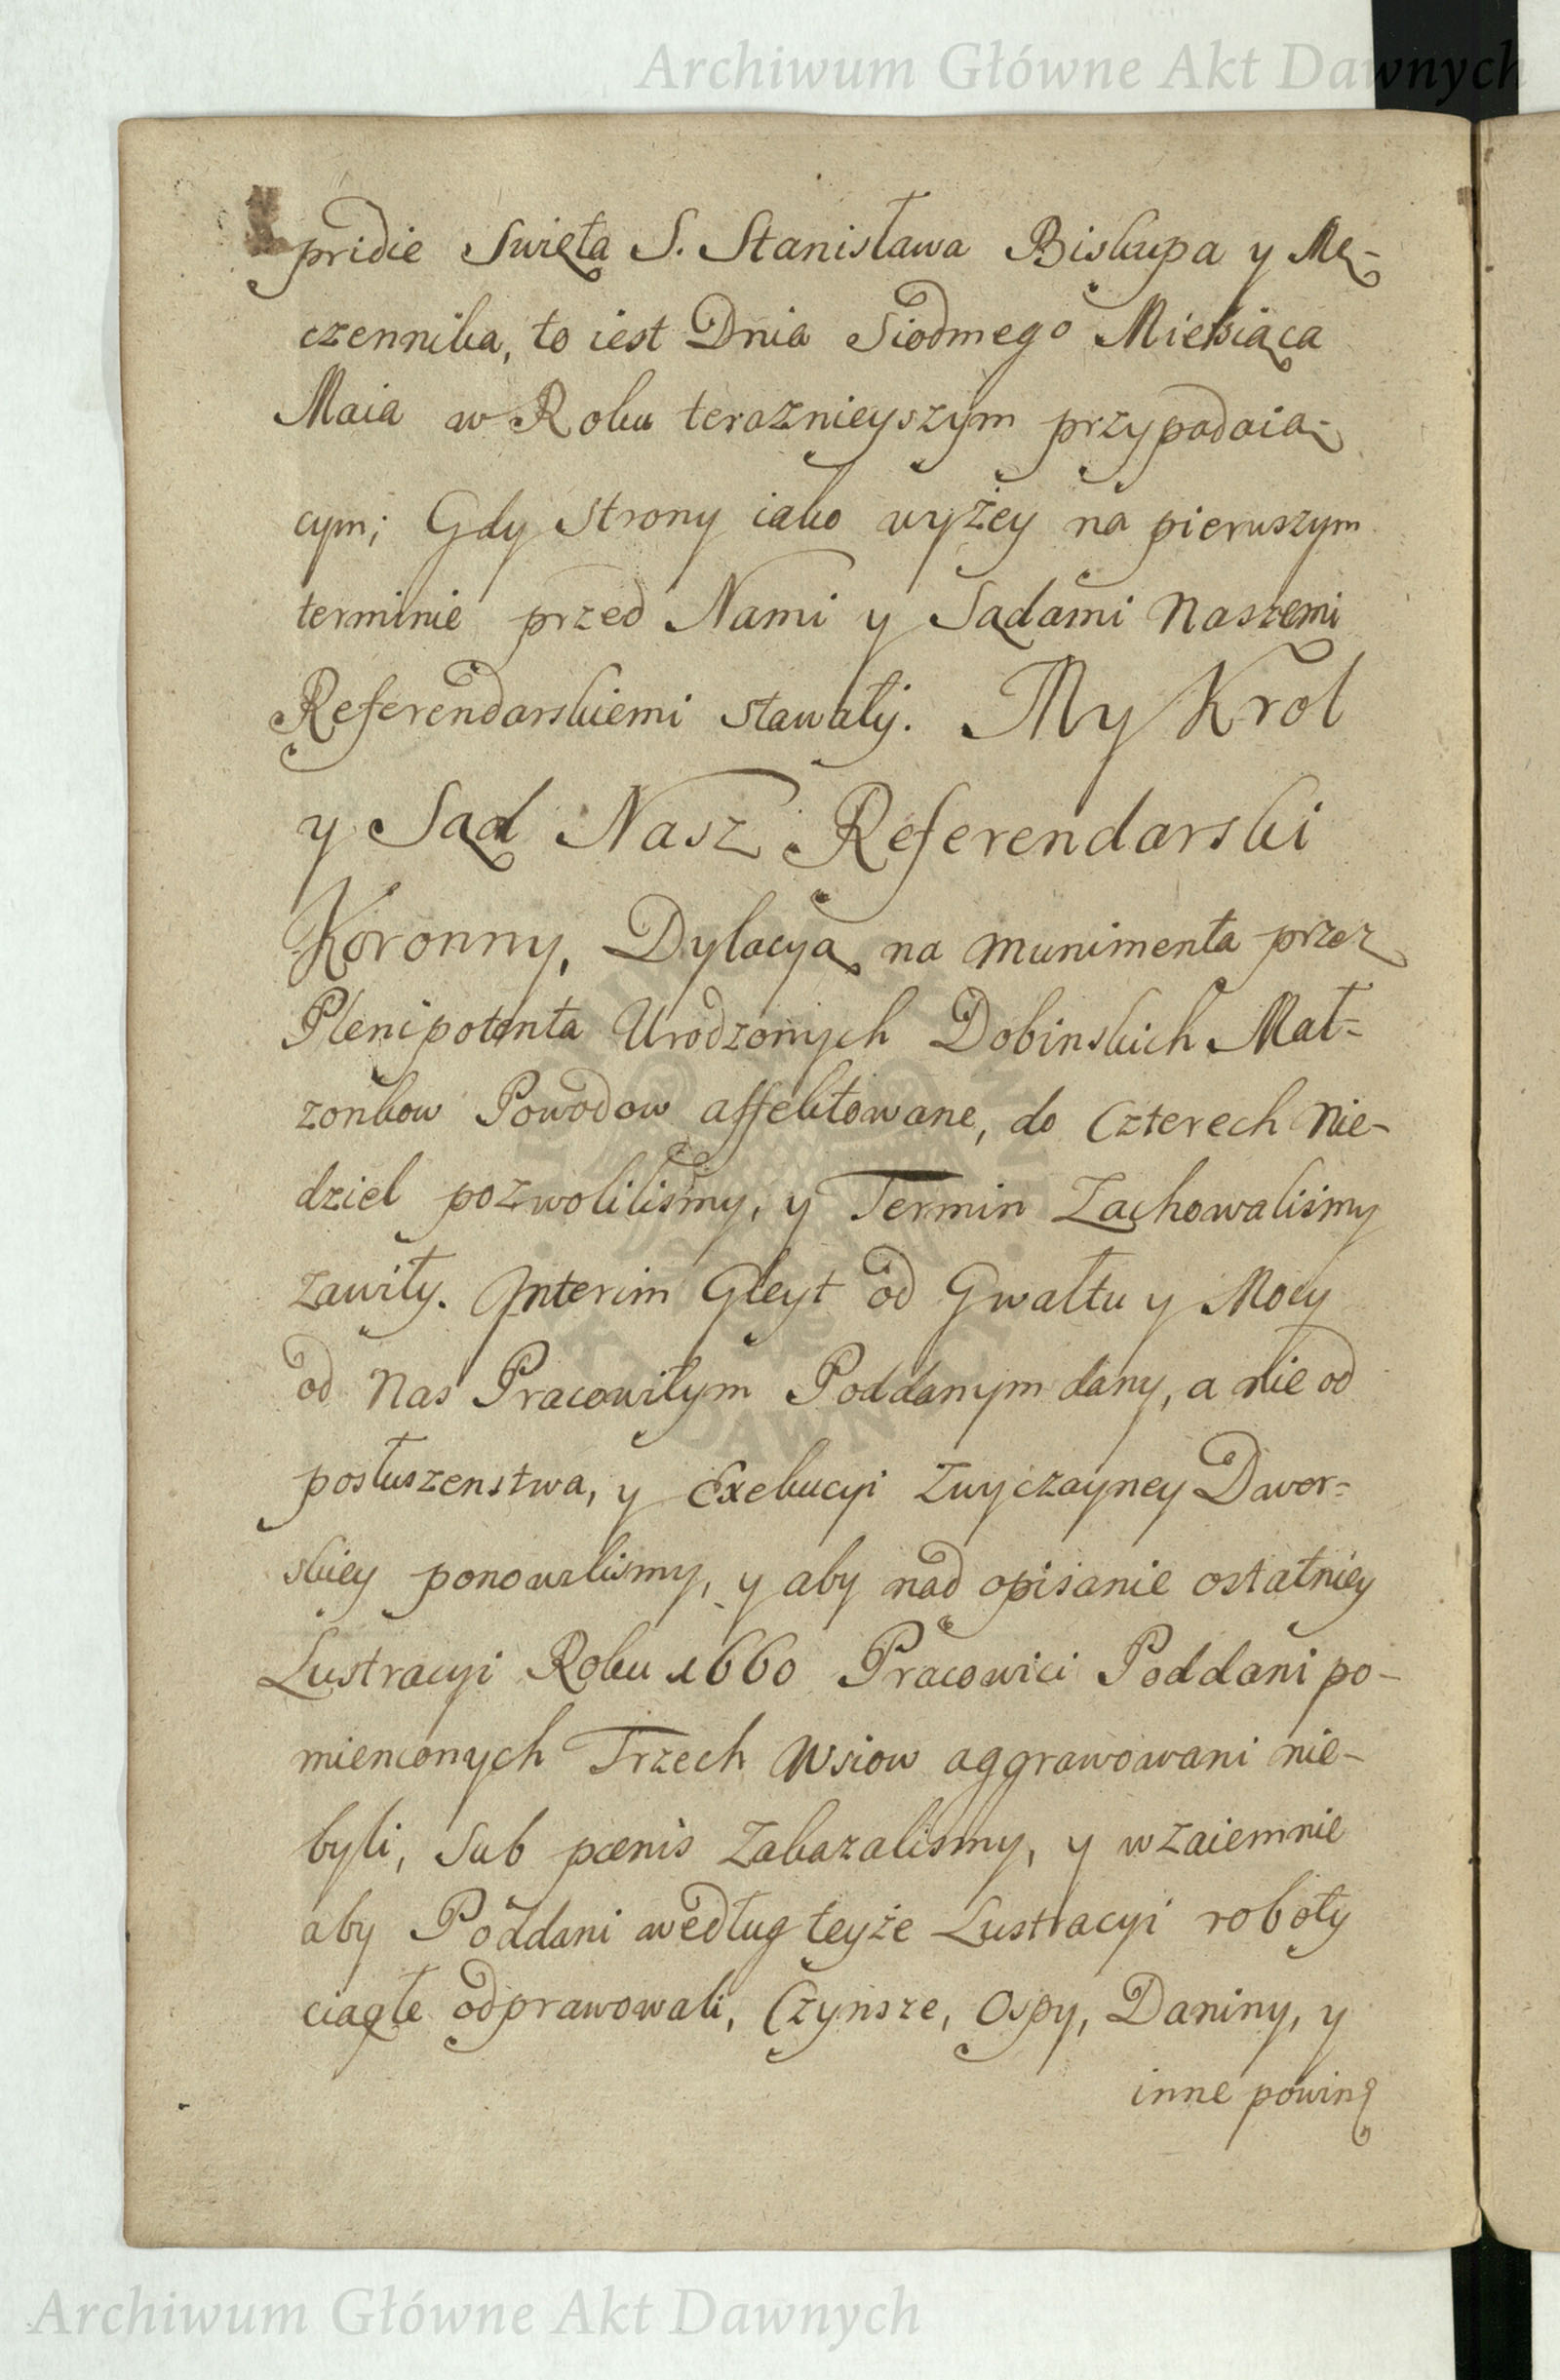 Archiwum Główne Akt Dawnych
pridie Swięta S. Stanisława Biskupa y Mę-
czennika, to iest Dnia Siodmego Miesiąca
Maia w Roku teraznieyszym przypadaią-
cym; Gdy Strony iako wyżey na pierwszym
terminie przed Nami y Sądami Naszemi
Referendarskiemi stawały. My Krol
y Sąd Nasz Referendarski
Koronny, Dylacyą na munimenta przez
Plenipotenta Urodzonych Dobinskich Mał=
zonkow Powodow affektowane, do Czterech Nie-
dziel pozwoliliśmy, y Termin Zachowaliśmy
zawity. Interim Gleyt od Gwałtu y Mocy
od Nas Pracowitym Poddanym dany, a nie od
posłuszenstwa, y Exekucyi Zwyczayney Dwor=
skiey ponowiliśmy, y aby nad opisanie ostatniey
Lustracyi Roku 1660 Pracowici Poddani po-
mienionych Trzech Wsiow aggrawowani nie-
byli, sub pœnis Zakazalismy, y wzaiemnie
aby Poddani według teyże Lustracyi roboty
ciągłe odprawowali, Czynsze, Ospy, Daniny, y
inne powin
Archiwum Główne Akt Dawnych